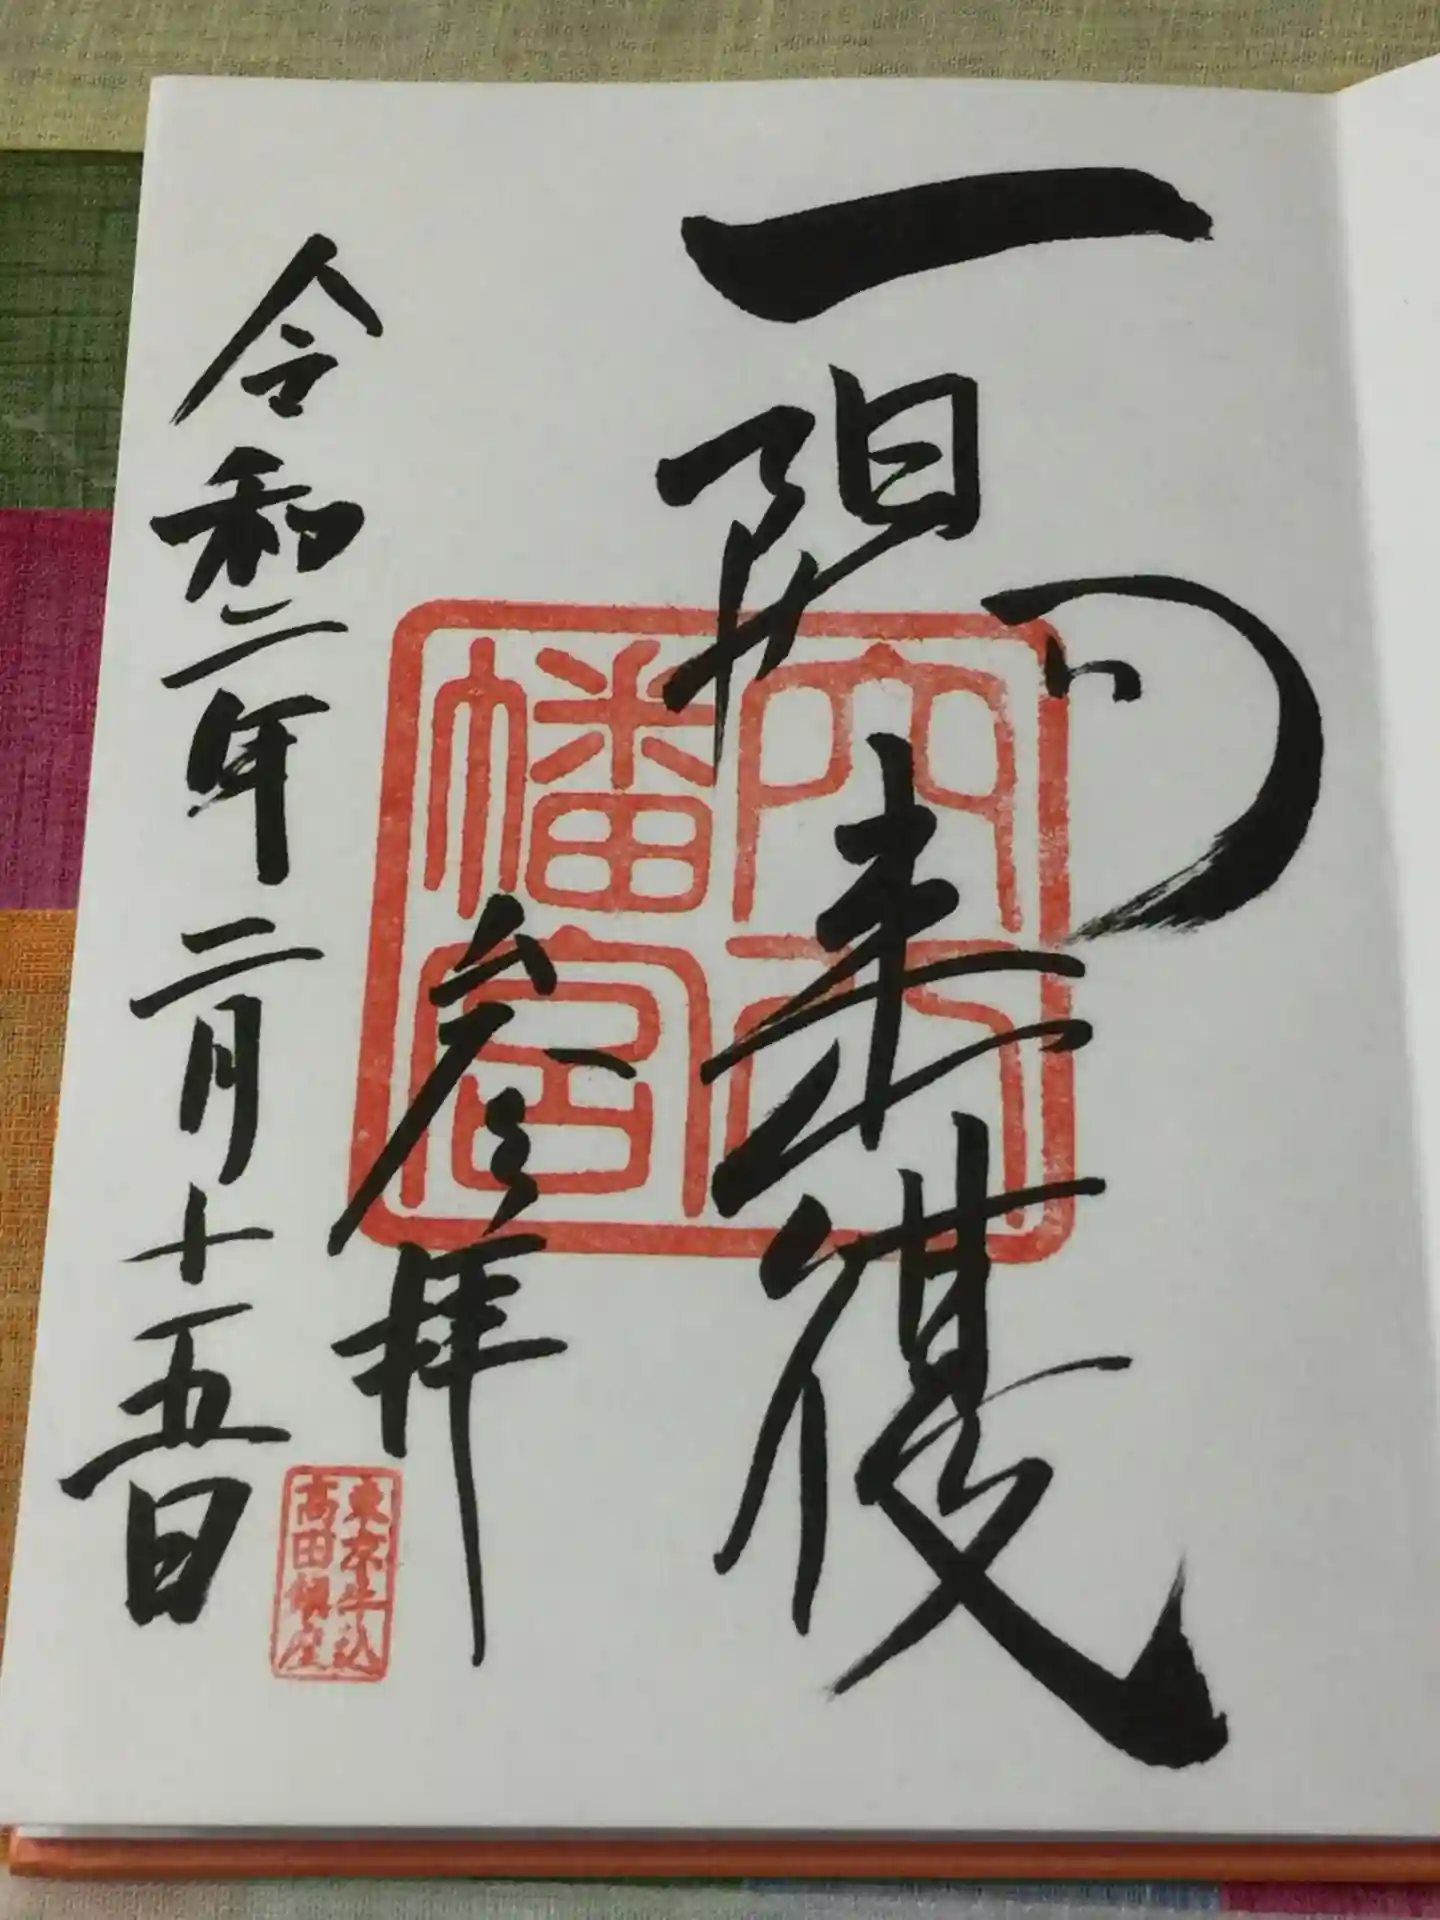 一陽来復
穴八
幡宮
参拝
東京牛込
高田鎮座
令和二年二月十五日